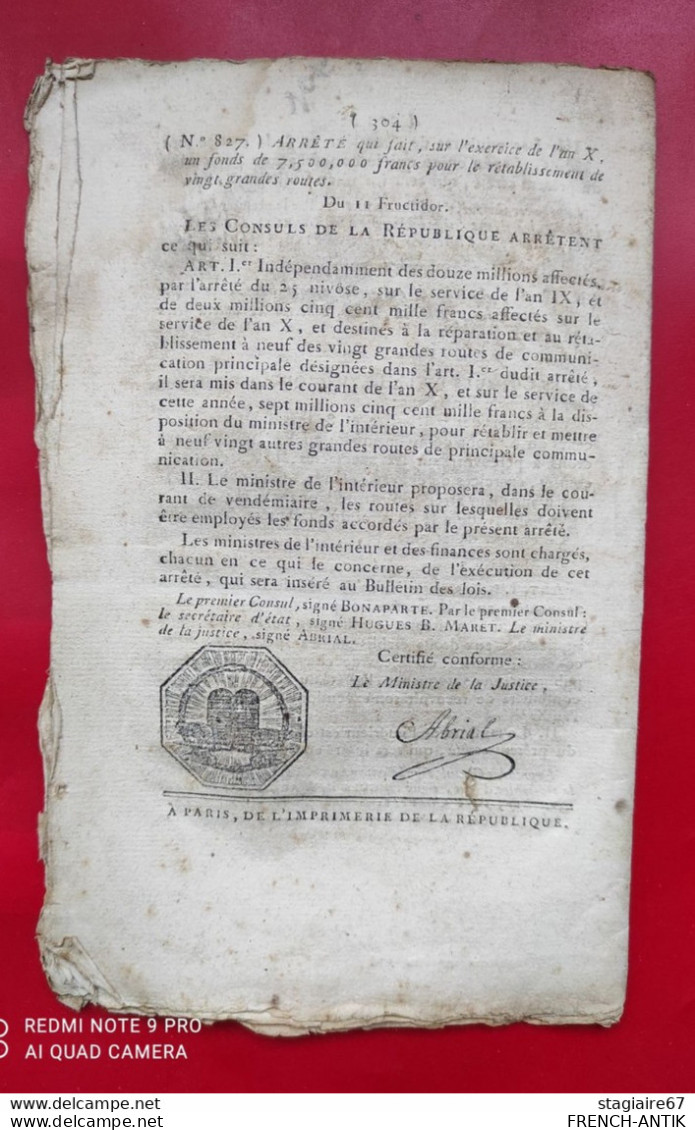 ( 304 )
( N.° 827. ) ARRÊTÉ qui fait, sur l'exercice de l'an X,
un fonds de 7,500,000 francs pour le rétablissement de
vingt grandes routes.
Du 11 Fructidor.
LES CONSULS DE LA RÉPUBLIQUE ARRÊTENT
ce qui suit :
ART. I.er Indépendamment des douze millions affectés,
par l'arrêté du 25 nivôse, sur le service de l'an IX, et
de deux millions cinq cent mille francs affectés sur le
service de l'an X, et destinés à la réparation et au réta-
blissement à neuf des vingt grandes routes de communi-
cation principale désignées dans l'art. I.er dudit arrêté,
il sera mis dans le courant de l'an X, et sur le service de
cette année, sept millions cinq cent mille francs à la dis-
position du ministre de l'intérieur, pour rétablir et mettre
à neuf vingt autres grandes routes de principale commu-
nication.
II. Le ministre de l'intérieur proposera, dans le cou-
rant de vendémiaire, les routes sur lesquelles doivent
être employés les fonds accordés par le présent arrêté.
Les ministres de l'intérieur et des finances sont chargés,
chacun en ce qui le concerne, de l'exécution de cet
arrêté, qui sera inséré au Bulletin des lois.
Le premier Consul, signé BONAPARTE. Par le premier Consul :
le secrétaire d'état, signé HUGUES B. MARET. Le ministre
de la justice, signé ABRIAL.
Certifié conforme :
Le Ministre de la Justice,
Abrial
À PARIS, DE L'IMPRIMERIE DE LA RÉPUBLIQUE.
REDMI NOTE 9 PRO
AI QUAD CAMERA
stagiaire67
FRENCH-ANTIK